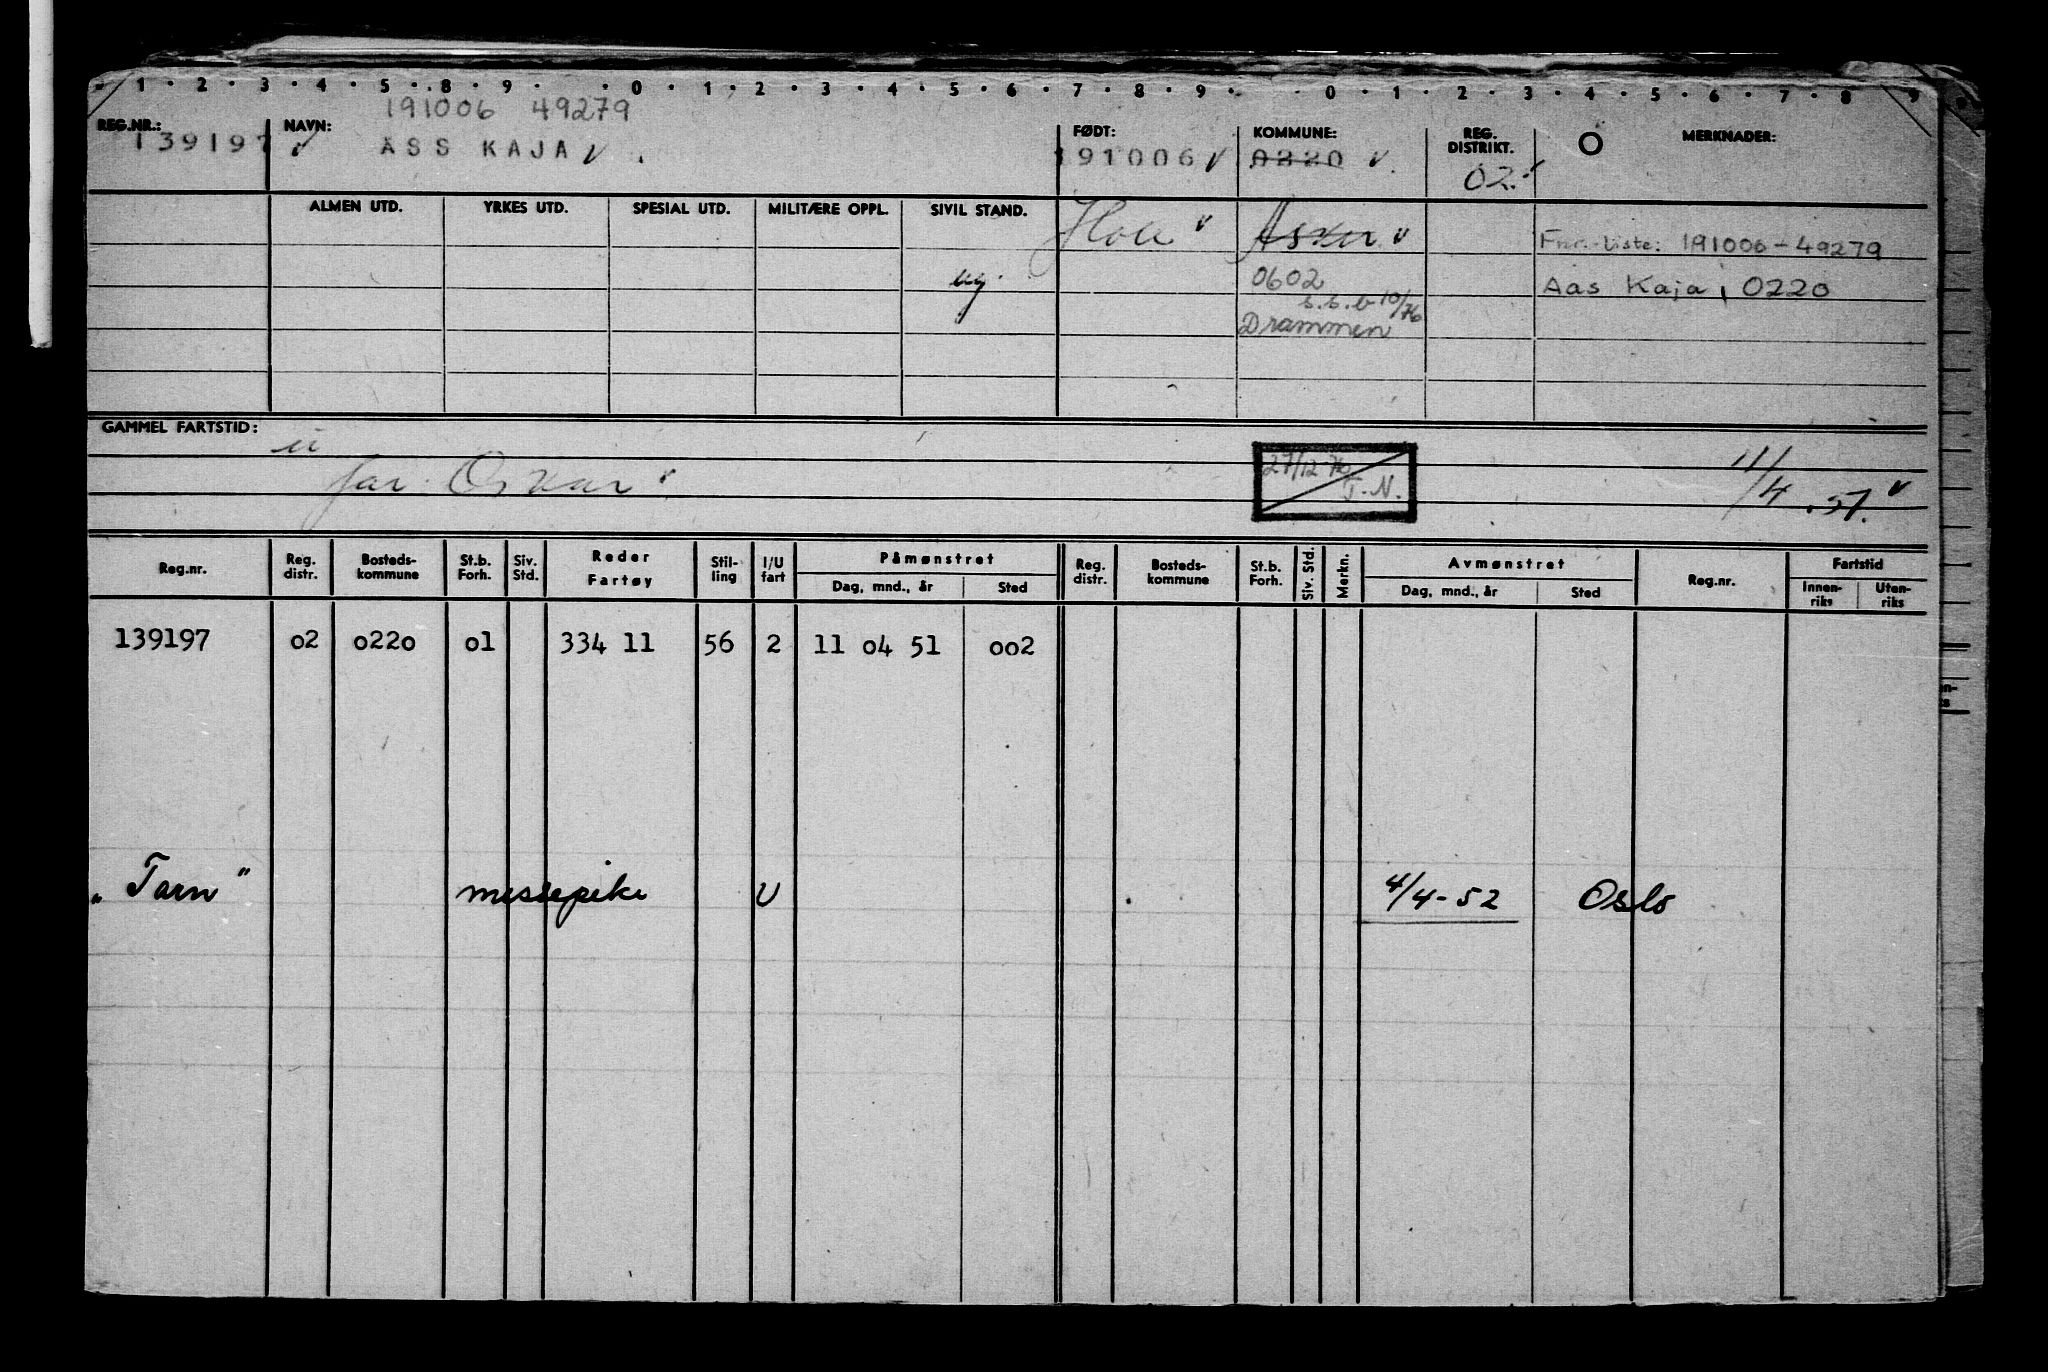 1 2 3 4 5 8 9 0 1 2 3 4 5 6 7 8 9 0 1 2 3 4 5 6 7 8 9
191006 49279
REG.NR.: NAVN: FØDT: KOMMUNE: REG. DISTRIKT. MERKNADER:
139197 ASS KAJA 191006 0220 02 O
ALMEN UTD. YRKES UTD. SPESIAL UTD. MILITÆRE OPPL. SIVIL STAND.
Hole Asker
Fnr.-liste: 191006-49279
ug. 0602 Aas Kaja, 0220
s.s.b 10/76
Drammen
GAMMEL FARTSTID:
far. Oskar
27/12 76
T.N.
11/4.51.
Reg.nr. Reg. distr. Bosteds-kommune St.b. Forh. Siv. Std. Reder Fartøy Stil-ling I/U fart Påmønstret Reg. distr. Bosteds-kommune St.b. Forh. Siv. Std. Merkn. Avmønstret Reg.nr. Fartstid
Dag, mnd., år Sted Dag, mnd., år Sted Innen-riks Uten-riks
139197 02 0220 01 334 11 56 2 11 04 51 002
"Tarn" messepike U 4/4-52 Oslo